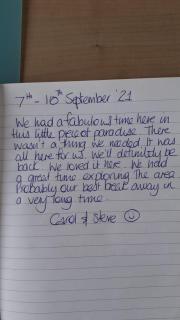 7th - 10th September '21
We had a fabulous time here in
this little piece of paradise. There
wasn't a thing we needed. It was
all here for us. We'll definitely be
back. We loved it here. We held
a great time exploring the area.
Probably our best break away in
a very long time.
Carol & Steve ☺